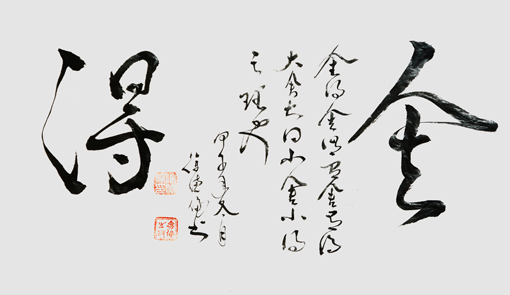 舍
舍得舍得有舍有得
大舍大得小舍小得
之理也
甲午年冬月
得